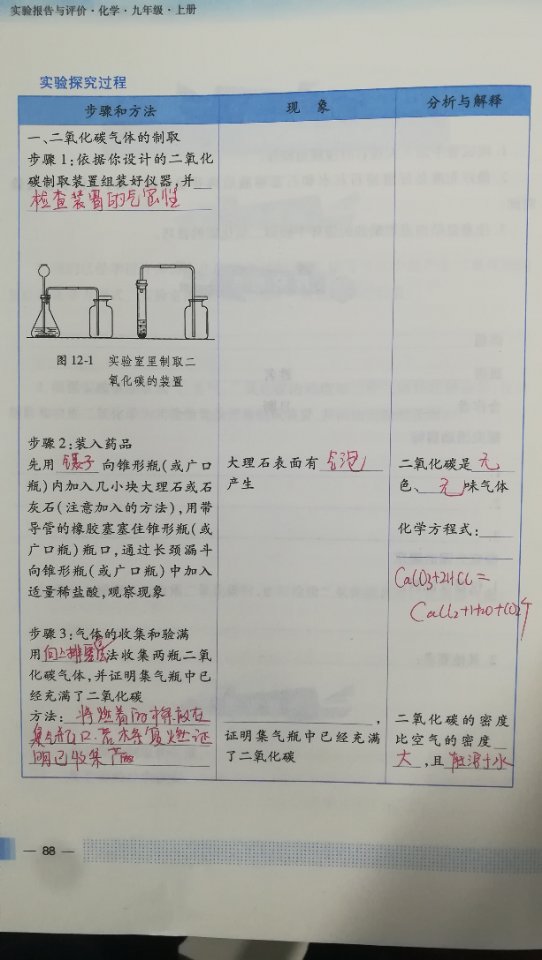 实验报告与评价·化学·九年级·上册
实验探究过程
步骤和方法
现 象
分析与解释
一、二氧化碳气体的制取
步骤1:依据你设计的二氧化
碳制取装置组装好仪器,并
检查装置的气密性
图12-1 实验室里制取二
氧化碳的装置
步骤2:装入药品
先用 镊子 向锥形瓶(或广口
瓶)内加入几小块大理石或石
灰石(注意加入的方法),用带
导管的橡胶塞塞住锥形瓶(或
广口瓶)瓶口,通过长颈漏斗
向锥形瓶(或广口瓶)中加入
适量稀盐酸,观察现象
大理石表面有 气泡
产生
二氧化碳是 无
色、 无 味气体
化学方程式:
CaCO3+2HCl=
CaCl2+H2O+CO2↑
步骤3:气体的收集和验满
用向上排空法法收集两瓶二氧
化碳气体,并证明集气瓶中已
经充满了二氧化碳
方法: 将燃着的木条放在
集气瓶口.若木条 证
明已收集
,
证明集气瓶中已经充满
了二氧化碳
二氧化碳的密度
比空气的密度
大 ,且 能溶于水
— 88 —